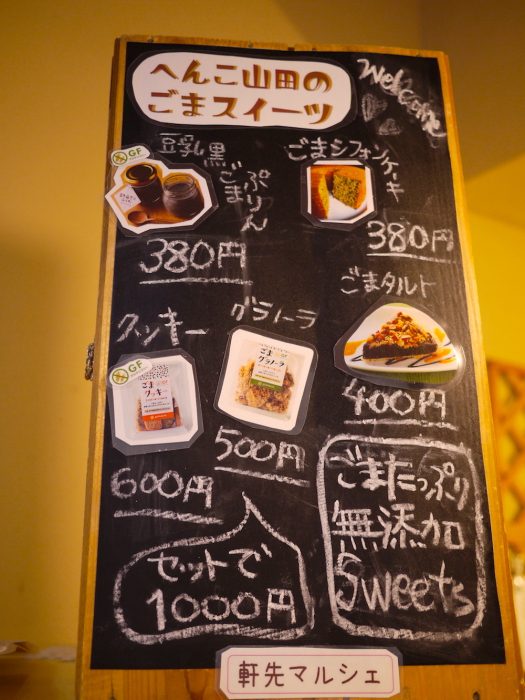 へんこ山田の
ごまスイーツ
Welcome
GF
豆乳黒
ごまぷりん
380円
ごまシフォンケーキ
380円
ごまタルト
400円
クッキー
GF
ごま
クッキー
600円
グラノーラ
ごま
グラノーラ
500円
セットで
1000円
ごまたっぷり
無添加
Sweets
軒先マルシェ